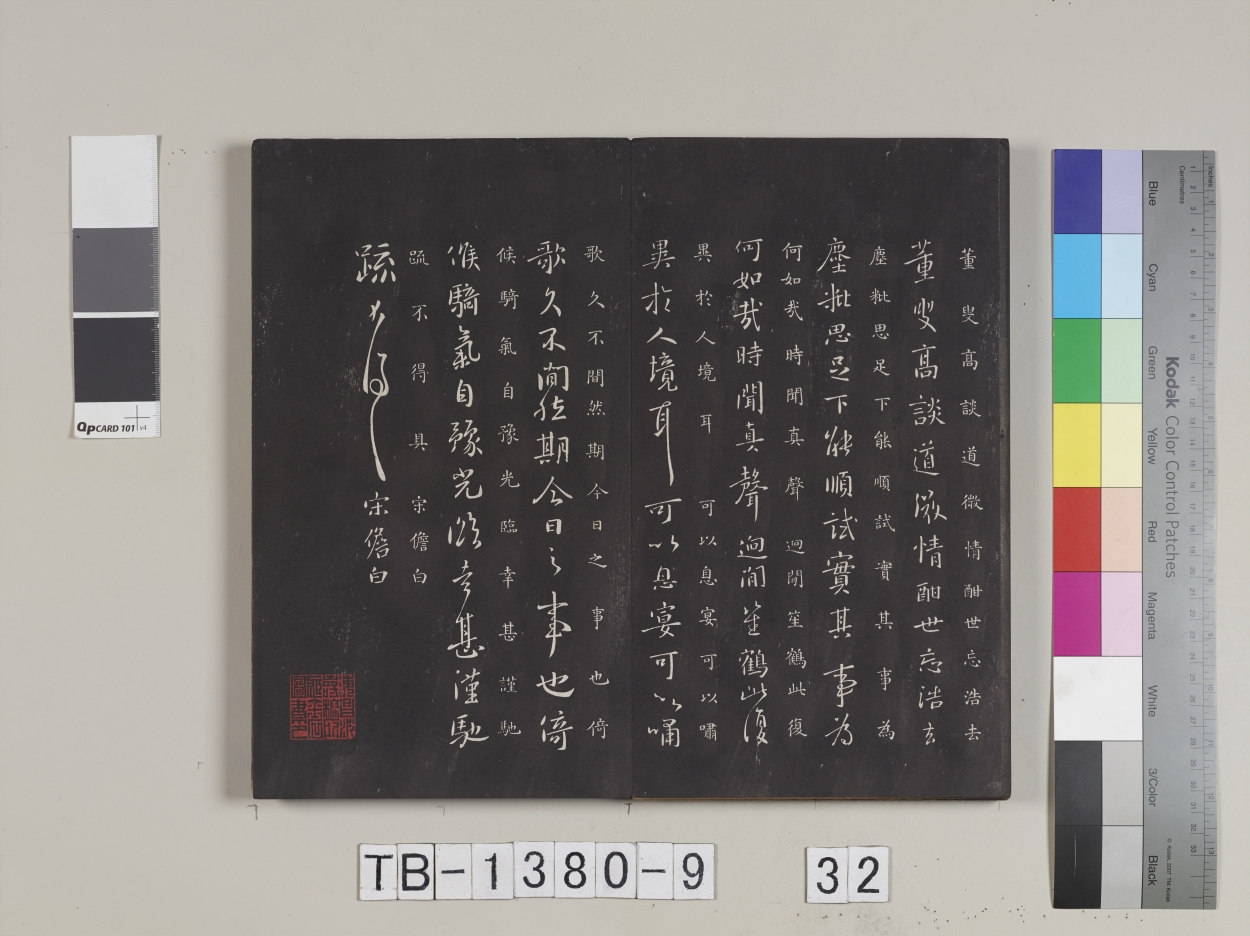 董叟高談道微情酣世忘浩去
董叟高談道微情酣世忘浩去
塵粃思足下能順試實其事為
塵粃思足下能順試實其事為
何如哉時聞真聲迥閒笙鶴此復
何如哉時聞真聲迥閒笙鶴此復
異於人境耳可以息宴可以嘯
異於人境耳可以息宴可以嘯
歌久不間然期今日之事也倚
歌久不間然期今日之事也倚
候騎氣自豫光臨幸甚謹馳
候騎氣自豫光臨幸甚謹馳
疏不得具宋儋白
疏不得具宋儋白
TB-1380-9 32
QPCARD 101 v4
Kodak Color Control Patches
Blue Cyan Green Yellow Red Magenta White 3/Color Black
Inches
Centimetres
© Kodak, 2007 TM: Kodak